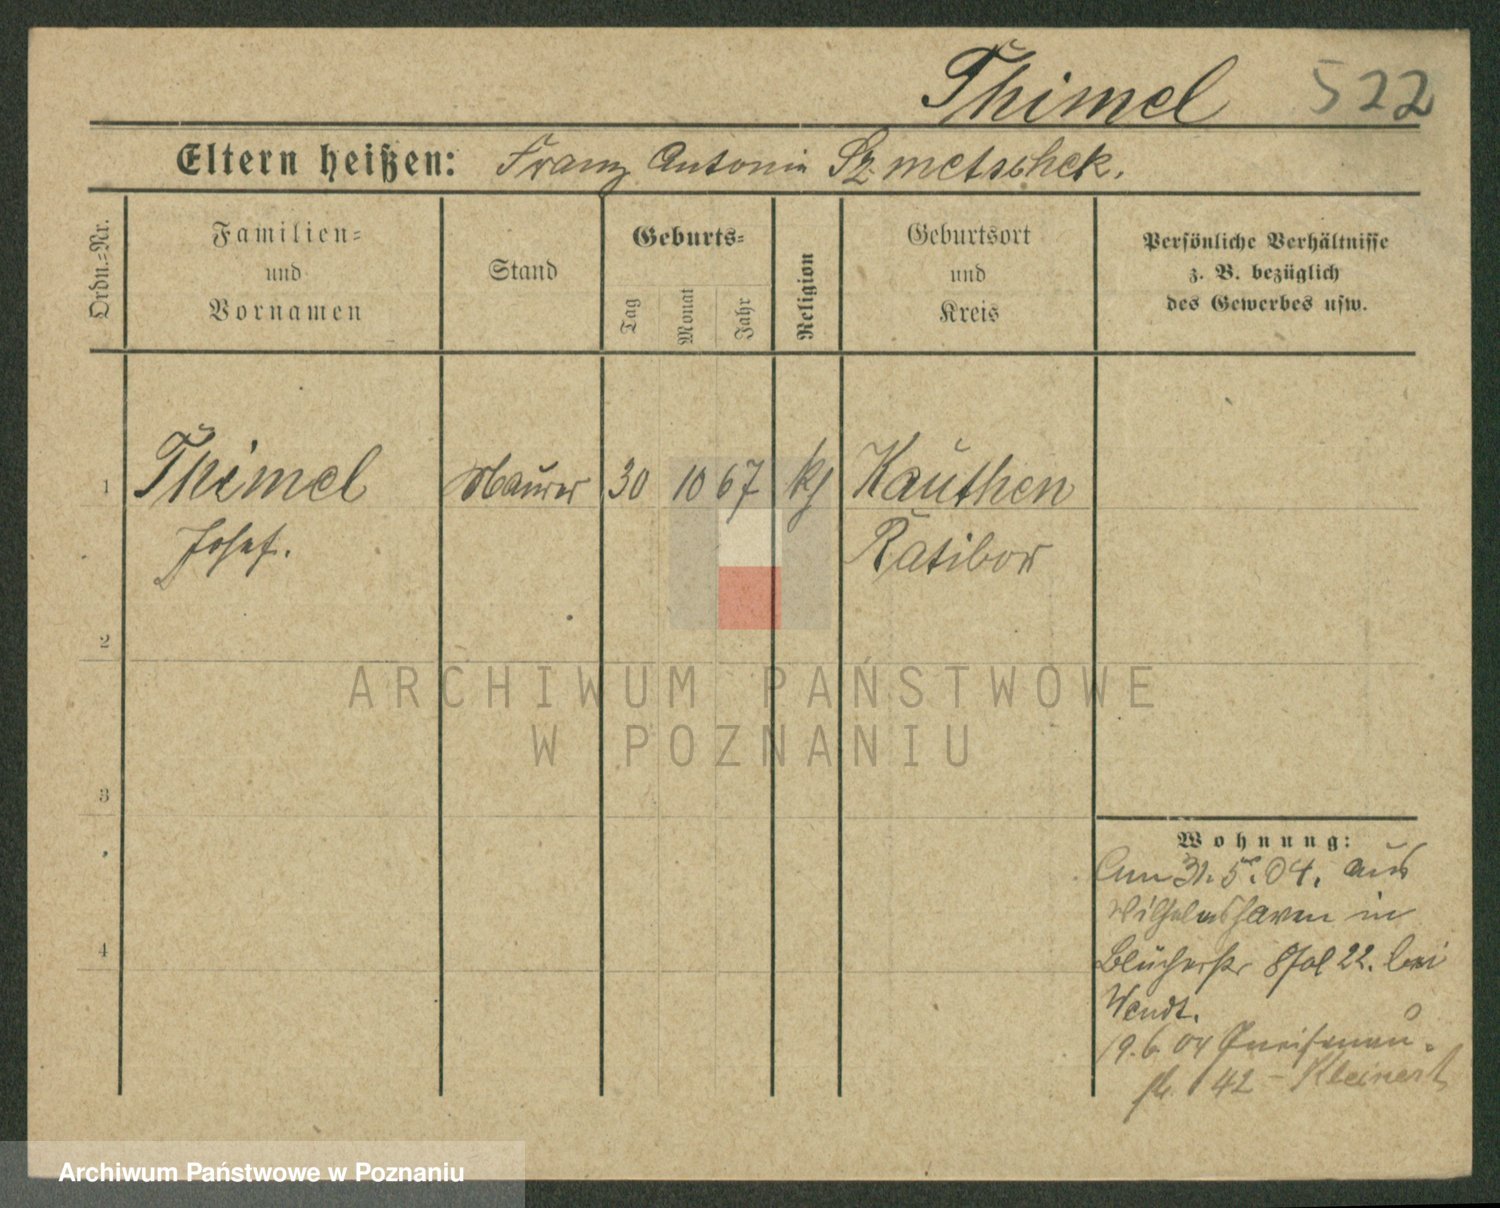 Thimel 522
Eltern heißen: Franz Antonie Szmetschek.
Ordn.=Nr.
Familien=
und
Vornamen
Stand
Geburts=
Tag
Monat
Jahr
Religion
Geburtsort
und
Kreis
Persönliche Verhältnisse
z. B. bezüglich
des Gewerbes usw.
1 Thimel Maurer 30 10 67 kg Kauthen
Josef. Ratibor
2
ARCHIWUM PAŃSTWOWE
W POZNANIU
3
Wohnung:
Am 31.5.04. aus
Wilhelmshaven in
Blücherstr 22. bei
Wendt.
19.6.04 Gneisenau=
str. 42 - Kleinert
4
Archiwum Państwowe w Poznaniu